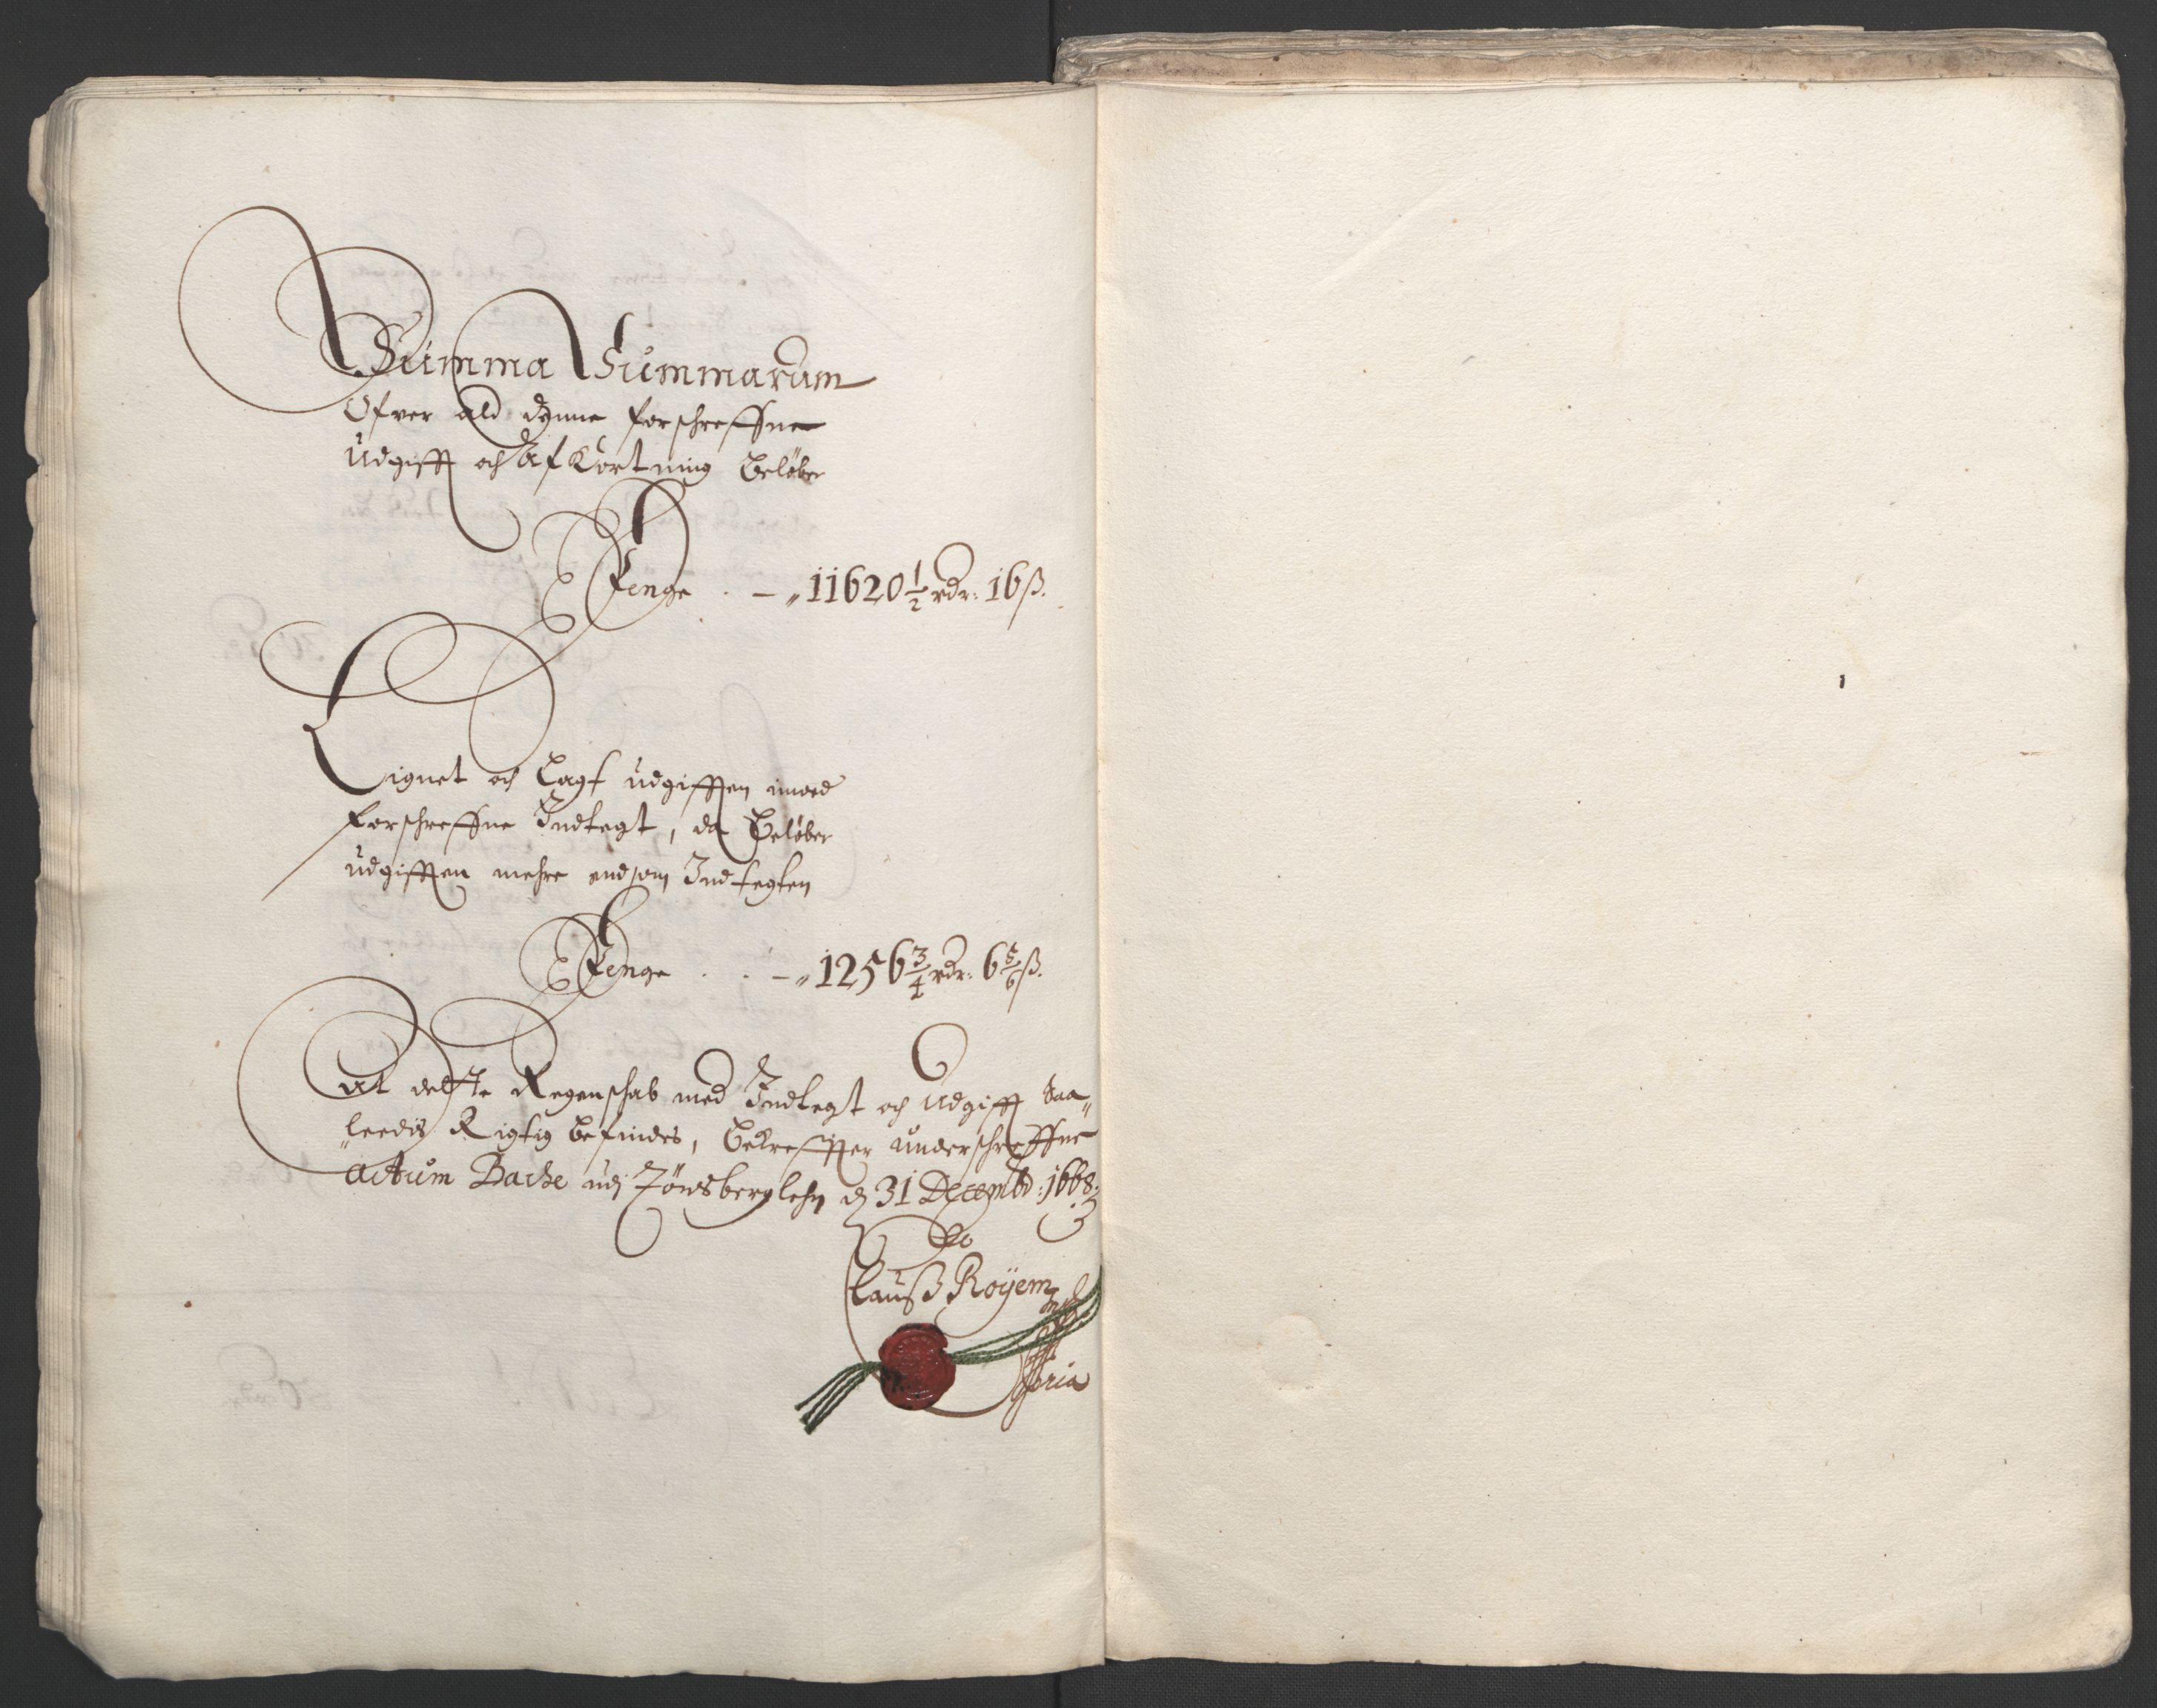 Summa Summarum
Ofver ald denne forschreffne
Udgifft och Afkortning Beløber
Penge . - „ 11620 1/2 rdr: 16 ß.
Lignet och Lagt udgifften imod
forschreffne Indtegt, da Beløber
udgifften mehre end som Indtegten
Penge . . - „ 1256 3/4 rdr: 6 5/6 ß.
At dette Regenschab med Indtegt och Udgifft saa„
„leedis Rigtig befindes, bekreffter underschreffne
Actum Backe udj Tönsberg lehn dj 31 Decembr: 1668.
Clauß Röyem